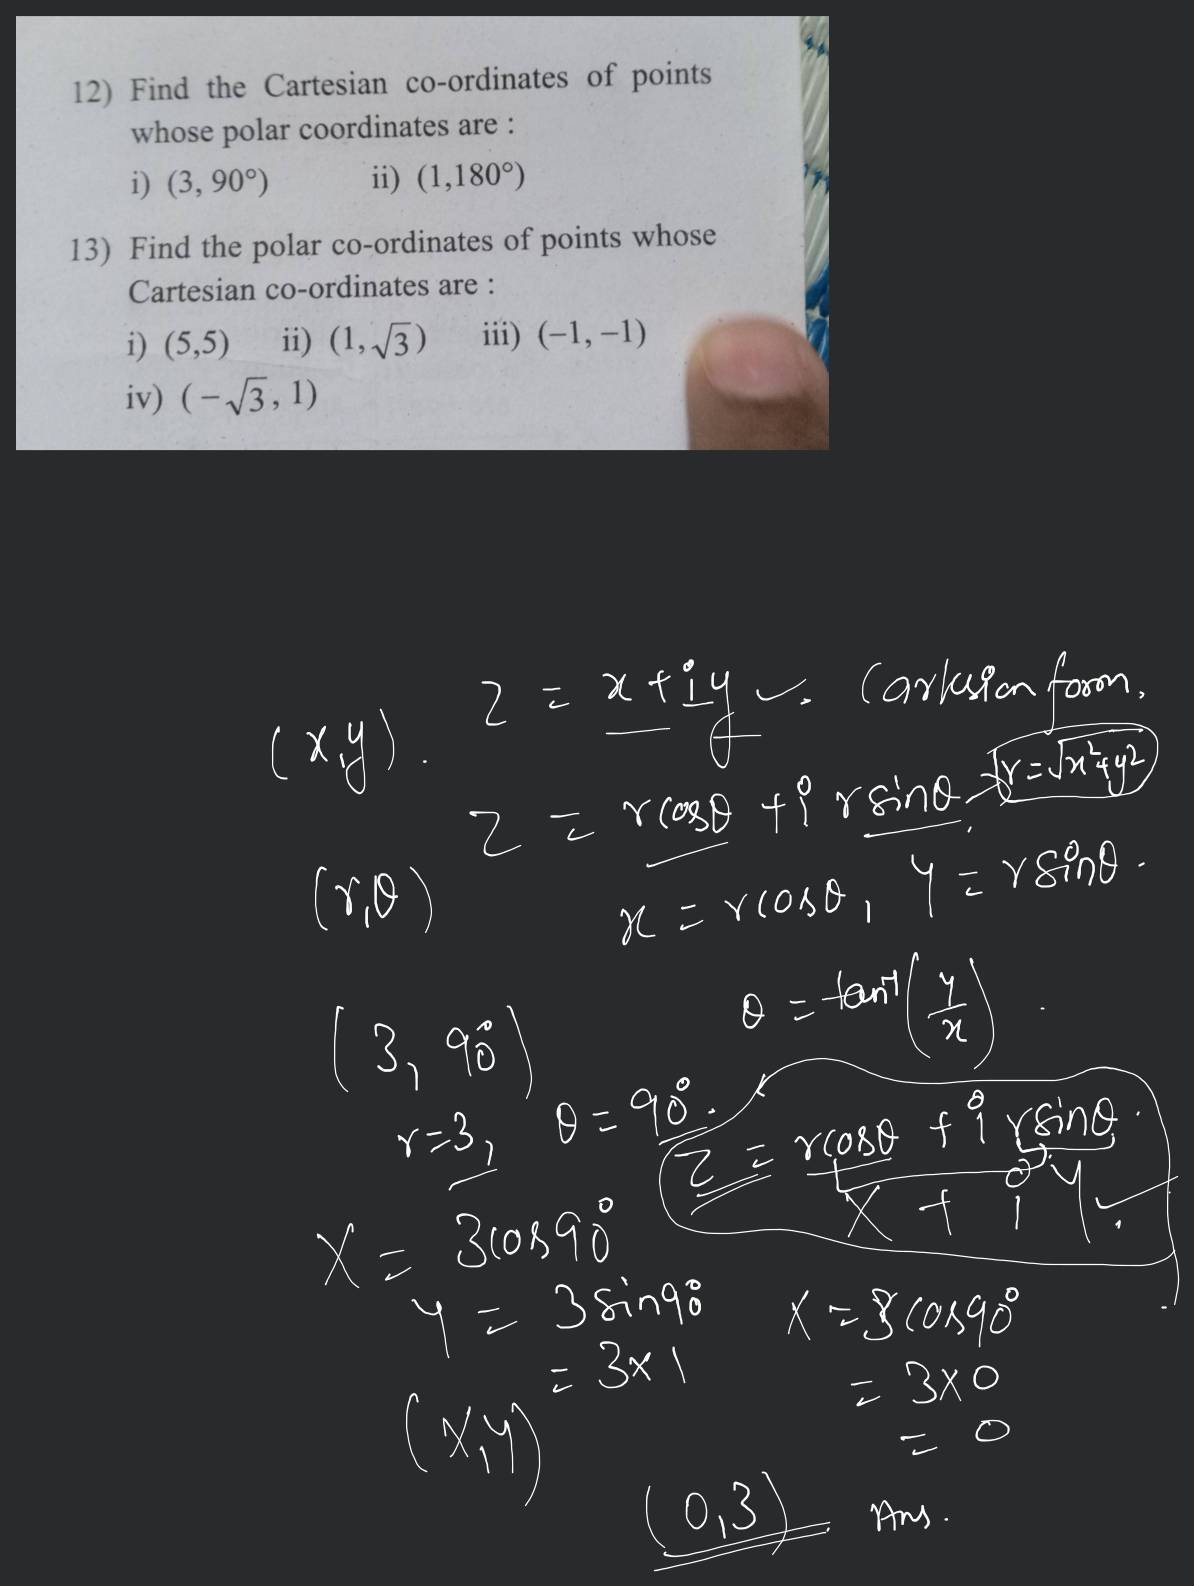 12) Find the Cartesian co-ordinates of points
whose polar coordinates are :
i) (3, 90°) ii) (1,180°)
13) Find the polar co-ordinates of points whose
Cartesian co-ordinates are :
i) (5,5) ii) (1, √3) iii) (−1, −1)
iv) (−√3, 1)
(x,y). z = x + iy ✓. Cartesian form.
r = √x²+y²
z = rcosθ + i rsinθ.
(r,θ) x = rcosθ, y = rsinθ.
θ = tan⁻¹(y/x).
(3, 90°)
r=3, θ = 90°.
z = rcosθ + i rsinθ.
x + i y.
x = 3cos90°
y = 3sin90° x = 3cos90°
= 3×1 = 3×0
(x,y) = 0
(0,3) Ans.